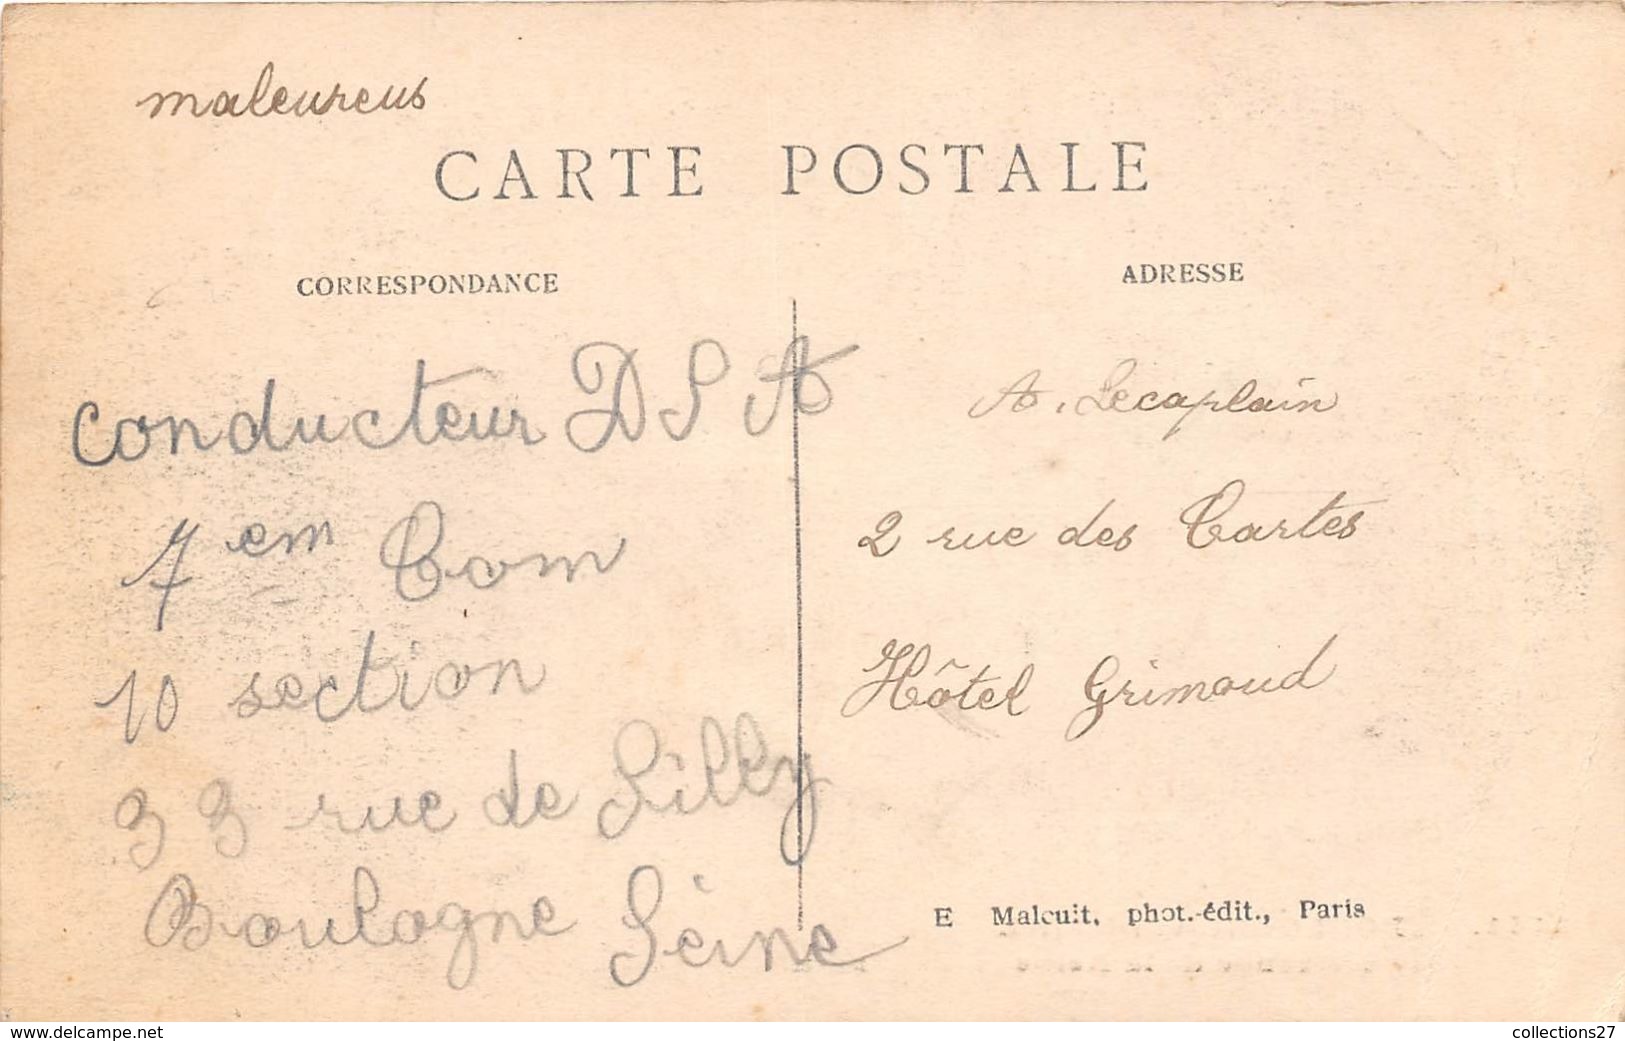 maleureus
CARTE POSTALE
CORRESPONDANCE
conducteur D S A
7em Com
10 section
33 rue de Silly
Boulogne Seine
ADRESSE
A. Lecaplain
2 rue des Cartes
Hôtel Grimoud
E Malcuit, phot.-édit., Paris
www.delcampe.net
collections27